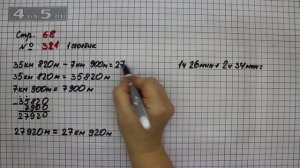 4.5.0
Стр. 68
№ 321 1 столбик
35км 820м – 7км 900м = 27
1ч 26мин + 2ч 34мин =
35км 820м = 35820м
7км 900м = 7900м
– 35820
7900
27920
27920м = 27км 920м